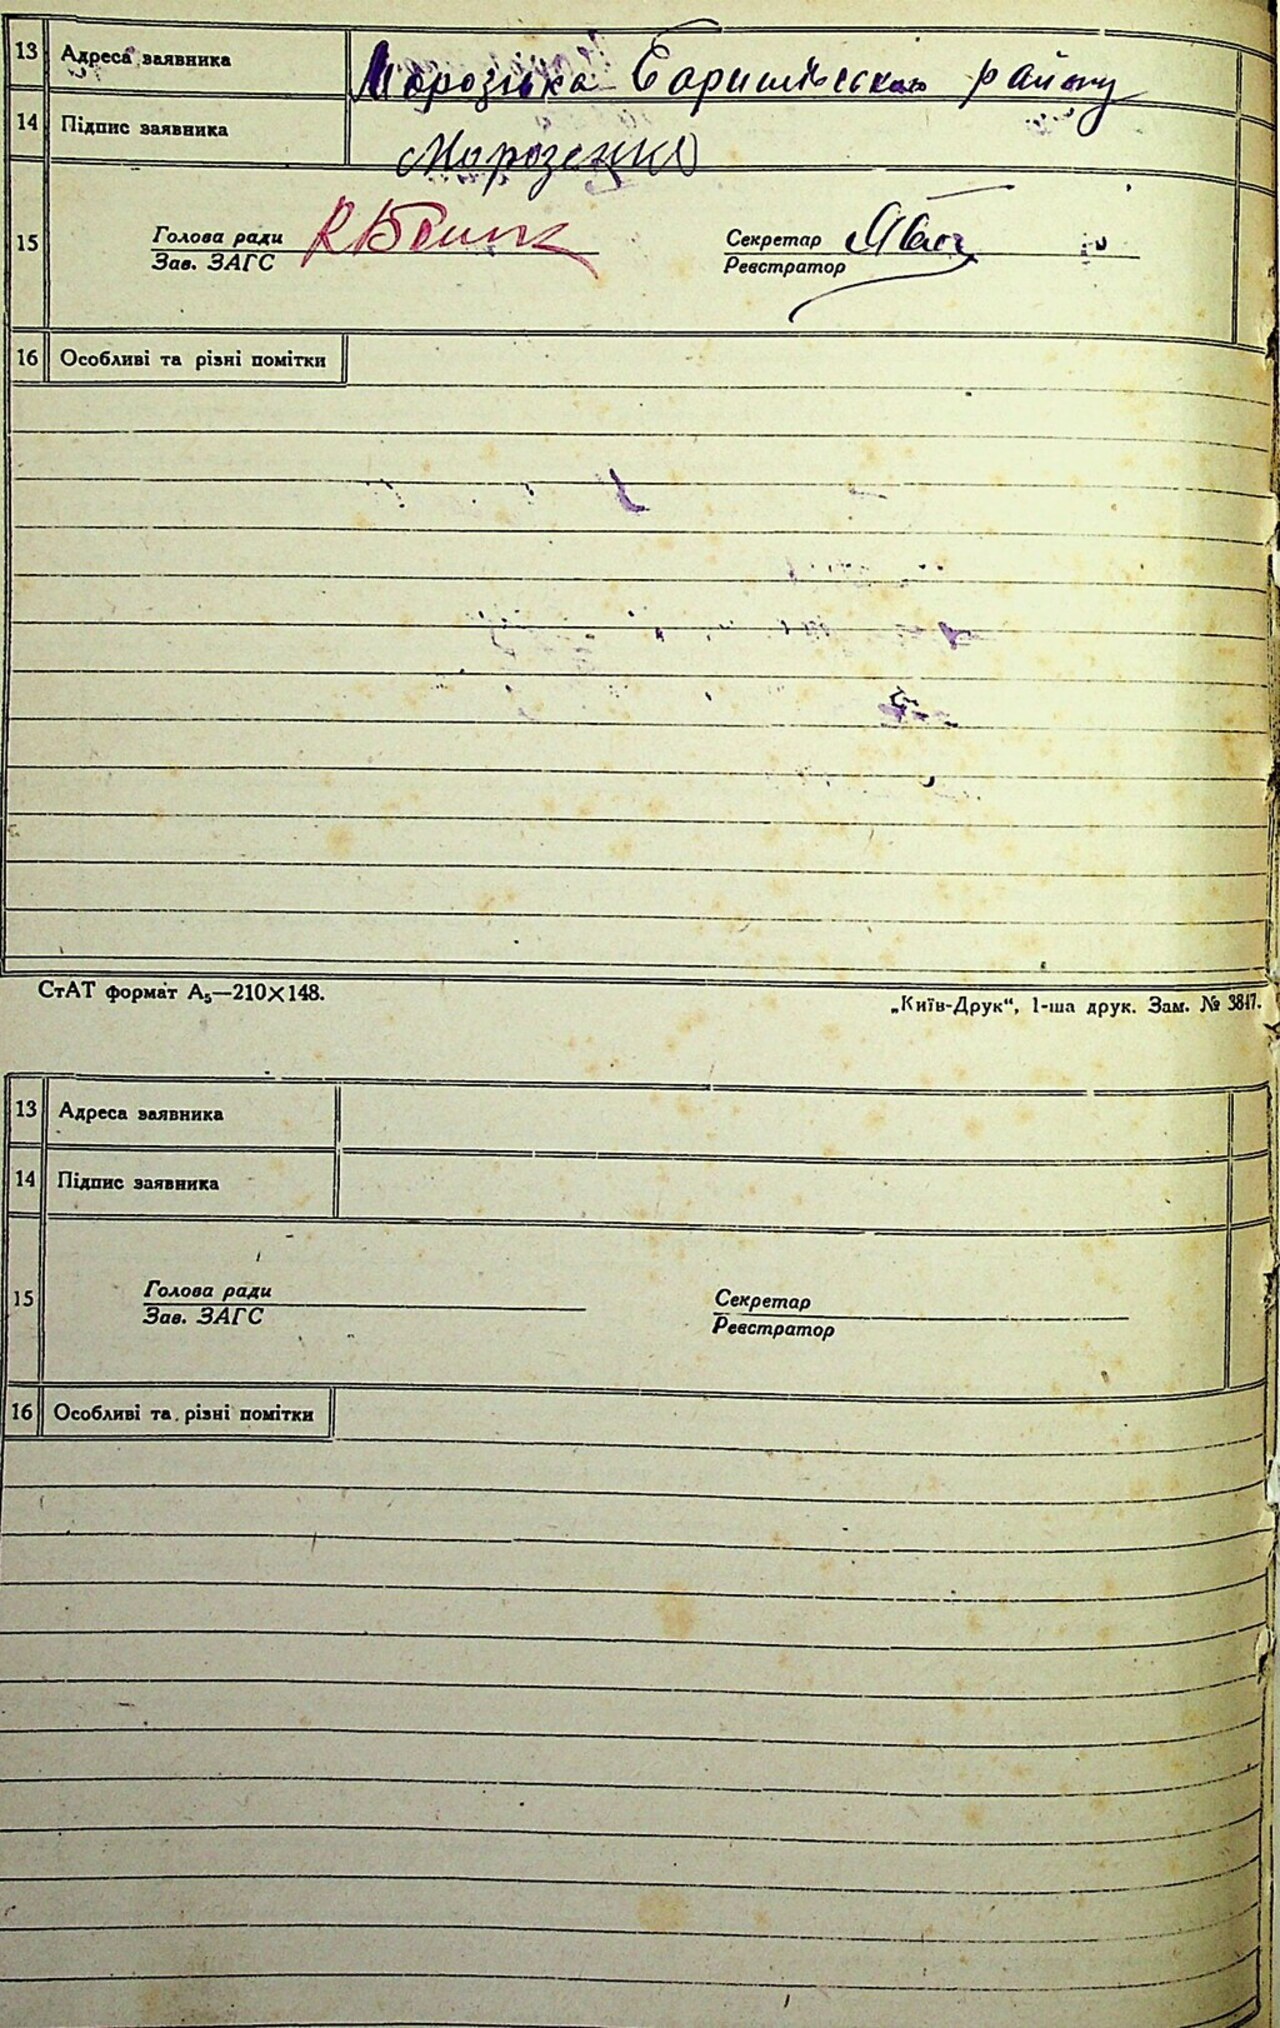 13 Адреса заявника Морозівка Баришівського району
14 Підпис заявника Морозенко
15 Голова ради Секретар
Зав. ЗАГС Реєстратор
16 Особливі та різні помітки
СтАТ формат А₅—210×148. „Київ-Друк“, 1-ша друк. Зам. № 3847.
13 Адреса заявника
14 Підпис заявника
15 Голова ради Секретар
Зав. ЗАГС Реєстратор
16 Особливі та різні помітки